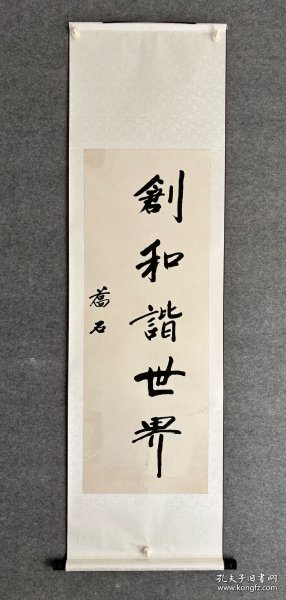 創和諧世界
喬石
孔夫子旧书网
www.kongfz.com